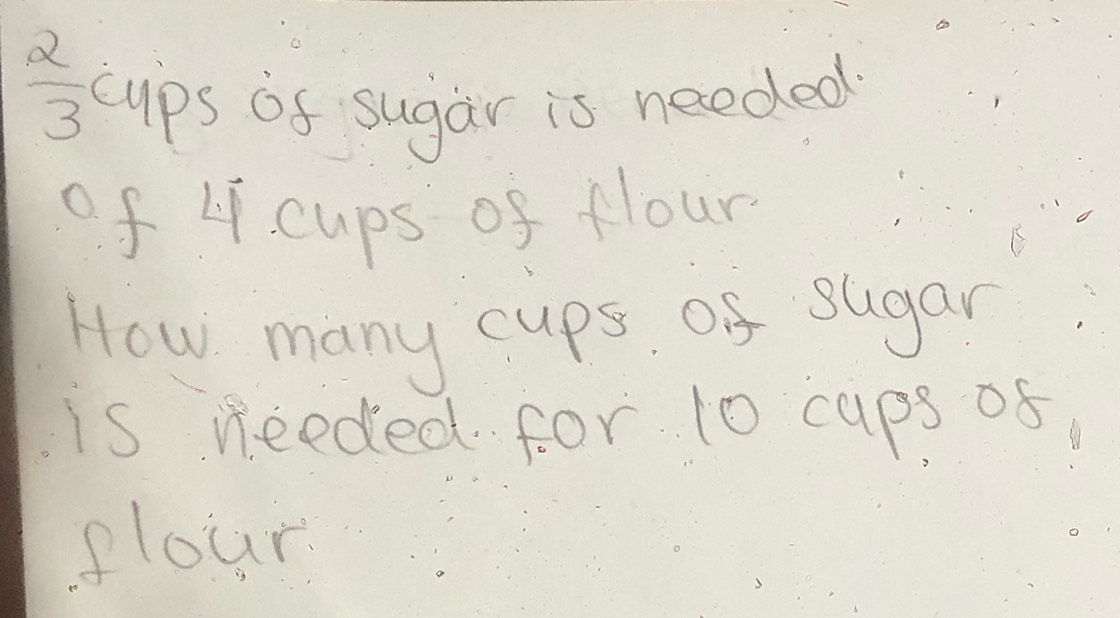 2/3 cups of sugar is needed
of 4 cups of flour
How many cups of sugar
is needed for 10 cups of
flour